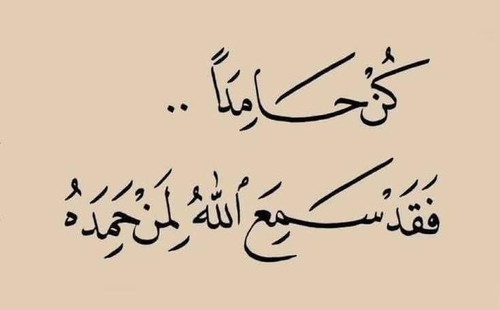 كُنْ حَامِدَاً ..
فَقَدْ سَمِعَ ٱللَّهُ لِمَنْ حَمِدَهُ